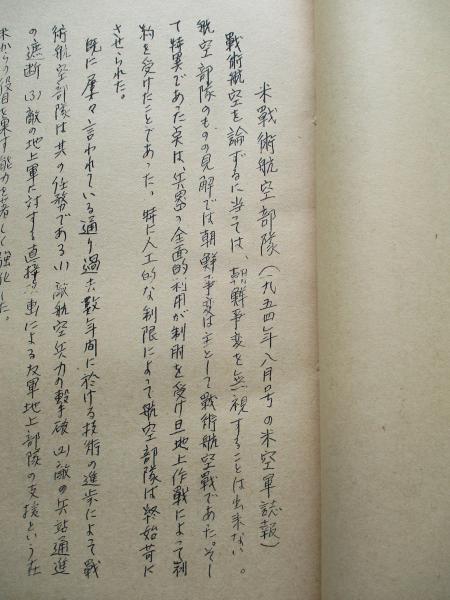 米戰術航空部隊（一九五四年八月号の米空軍誌報）
戰術航空を論ずるに当ては、朝鮮事変を無視することは出来ない。
航空部隊のものの見解では朝鮮事変は主として戰術航空戰であった。そし
て特異であった点は、兵器の全面的利用が制限を受け且地上作戰によって制
約を受けたことであった。特に人工的な制限によって航空部隊は終始苛に
させられた。
既に屡々言われている通り過去数年間に於ける技術の進歩によって戰
術航空部隊は其の任務である(1)敵航空兵力の撃破(2)敵の兵站通進
の遮断(3)敵の地上軍に対する直接による友軍地上部隊の支援という在
来からの役目を果す能力を著しく強化した。